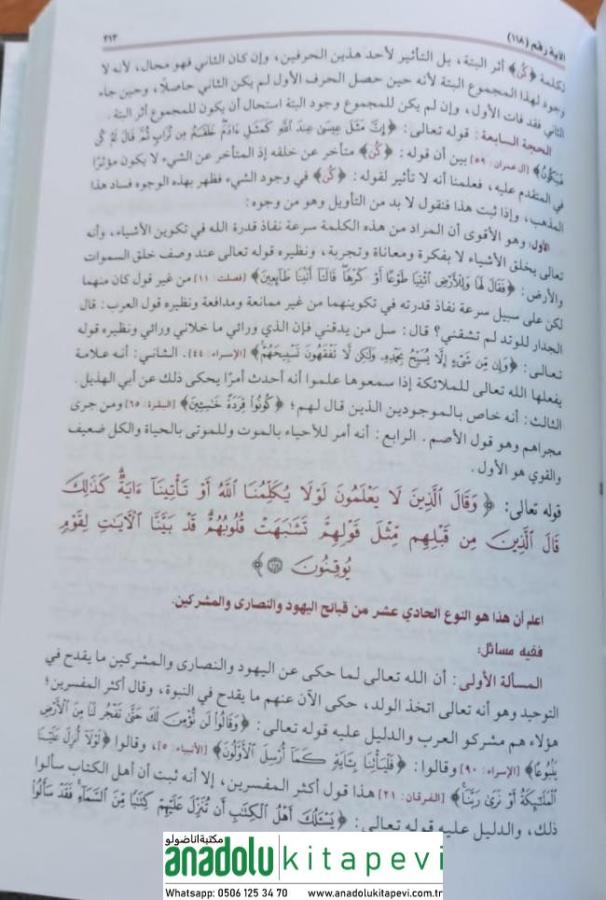 الآية رقم (١١٨)
٢١٣
لكلمة ﴿كُن﴾ أثر البتة، بل التأثير لأحد هذين الحرفين، وإن كان الثاني فهو محال، لأنه لا
وجود لهذا المجموع البتة لأنه حين حصل الحرف الأول لم يكن الثاني حاصلًا، وحين جاء
الثاني فقد فات الأول، وإن لم يكن للمجموع وجود البتة استحال أن يكون للمجموع أثر البتة.
الحجة السابعة: قوله تعالى: ﴿إِنَّ مَثَلَ عِيسَىٰ عِندَ اللَّهِ كَمَثَلِ ءَادَمَ خَلَقَهُ مِن تُرَابٍ ثُمَّ قَالَ لَهُ كُن
فَيَكُونُ﴾ [آل عمران: ٥٩] بين أن قوله: ﴿كُن﴾ متأخر عن خلقه إذ المتأخر عن الشيء لا يكون مؤثرًا
في المتقدم عليه، فعلمنا أنه لا تأثير لقوله: ﴿كُن﴾ في وجود الشيء فظهر بهذه الوجوه فساد هذا
المذهب، وإذا ثبت هذا فنقول لا بد من التأويل وهو من وجوه:
الأول: وهو الأقوى أن المراد من هذه الكلمة سرعة نفاذ قدرة الله في تكوين الأشياء، وأنه
تعالى يخلق الأشياء لا بفكرة ومعاناة وتجربة، ونظيره قوله تعالى عند وصف خلق السموات
والأرض: ﴿فَقَالَ لَهَا وَلِلْأَرْضِ ائْتِيَا طَوْعًا أَوْ كَرْهًا قَالَتَا أَتَيْنَا طَائِعِينَ﴾ [فصلت: ١١] من غير قول كان منهما
لكن على سبيل سرعة نفاذ قدرته في تكوينهما من غير ممانعة ومدافعة ونظيره قول العرب: قال
الجدار للوتد لم تشقني؟ قال: سل من يدقني فإن الذي ورائي ما خلاني ورائي ونظيره قوله
تعالى: ﴿وَإِن مِّن شَيْءٍ إِلَّا يُسَبِّحُ بِحَمْدِهِ وَلَٰكِن لَّا تَفْقَهُونَ تَسْبِيحَهُمْ﴾ [الإسراء: ٤٤]. الثاني: أنه علامة
يفعلها الله تعالى للملائكة إذا سمعوها علموا أنه أحدث أمرًا يحكى ذلك عن أبي الهذيل.
الثالث: أنه خاص بالموجودين الذين قال لهم؛ ﴿كُونُوا قِرَدَةً خَاسِئِينَ﴾ [البقرة: ٦٥] ومن جرى
مجراهم وهو قول الأصم. الرابع: أنه أمر للأحياء بالموت وللموتى بالحياة والكل ضعيف
والقوي هو الأول.
قوله تعالى: ﴿وَقَالَ الَّذِينَ لَا يَعْلَمُونَ لَوْلَا يُكَلِّمُنَا اللَّهُ أَوْ تَأْتِينَا ءَايَةٌ كَذَٰلِكَ
قَالَ الَّذِينَ مِن قَبْلِهِم مِّثْلَ قَوْلِهِمْ تَشَابَهَتْ قُلُوبُهُمْ قَدْ بَيَّنَّا الْآيَاتِ لِقَوْمٍ
يُوقِنُونَ ١١٨﴾
اعلم أن هذا هو النوع الحادي عشر من قبائح اليهود والنصارى والمشركين.
ففيه مسائل:
المسألة الأولى: أن الله تعالى لما حكى عن اليهود والنصارى والمشركين ما يقدح في
التوحيد وهو أنه تعالى اتخذ الولد، حكى الآن عنهم ما يقدح في النبوة، وقال أكثر المفسرين؛
هؤلاء هم مشركو العرب والدليل عليه قوله تعالى: ﴿وَقَالُوا لَن نُّؤْمِنَ لَكَ حَتَّىٰ تَفْجُرَ لَنَا مِنَ الْأَرْضِ
يَنبُوعًا﴾ [الإسراء: ٩٠] وقالوا: ﴿فَلْيَأْتِنَا بِآيَةٍ كَمَا أُرْسِلَ الْأَوَّلُونَ﴾ [الأنبياء: ٥]، وقالوا ﴿لَوْلَا أُنزِلَ عَلَيْنَا
الْمَلَائِكَةُ أَوْ نَرَىٰ رَبَّنَا﴾ [الفرقان: ٢١] هذا قول أكثر المفسرين، إلا أنه ثبت أن أهل الكتاب سألوا
ذلك، والدليل عليه قوله تعالى: ﴿يَسْأَلُكَ أَهْلُ الْكِتَابِ أَن تُنَزِّلَ عَلَيْهِمْ كِتَابًا مِّنَ السَّمَاءِ فَقَدْ سَأَلُوا
مكتبة اناضولو
anadolu kitapevi
Whatsapp: 0506 125 34 70 - www.anadolukitapevi.com.tr